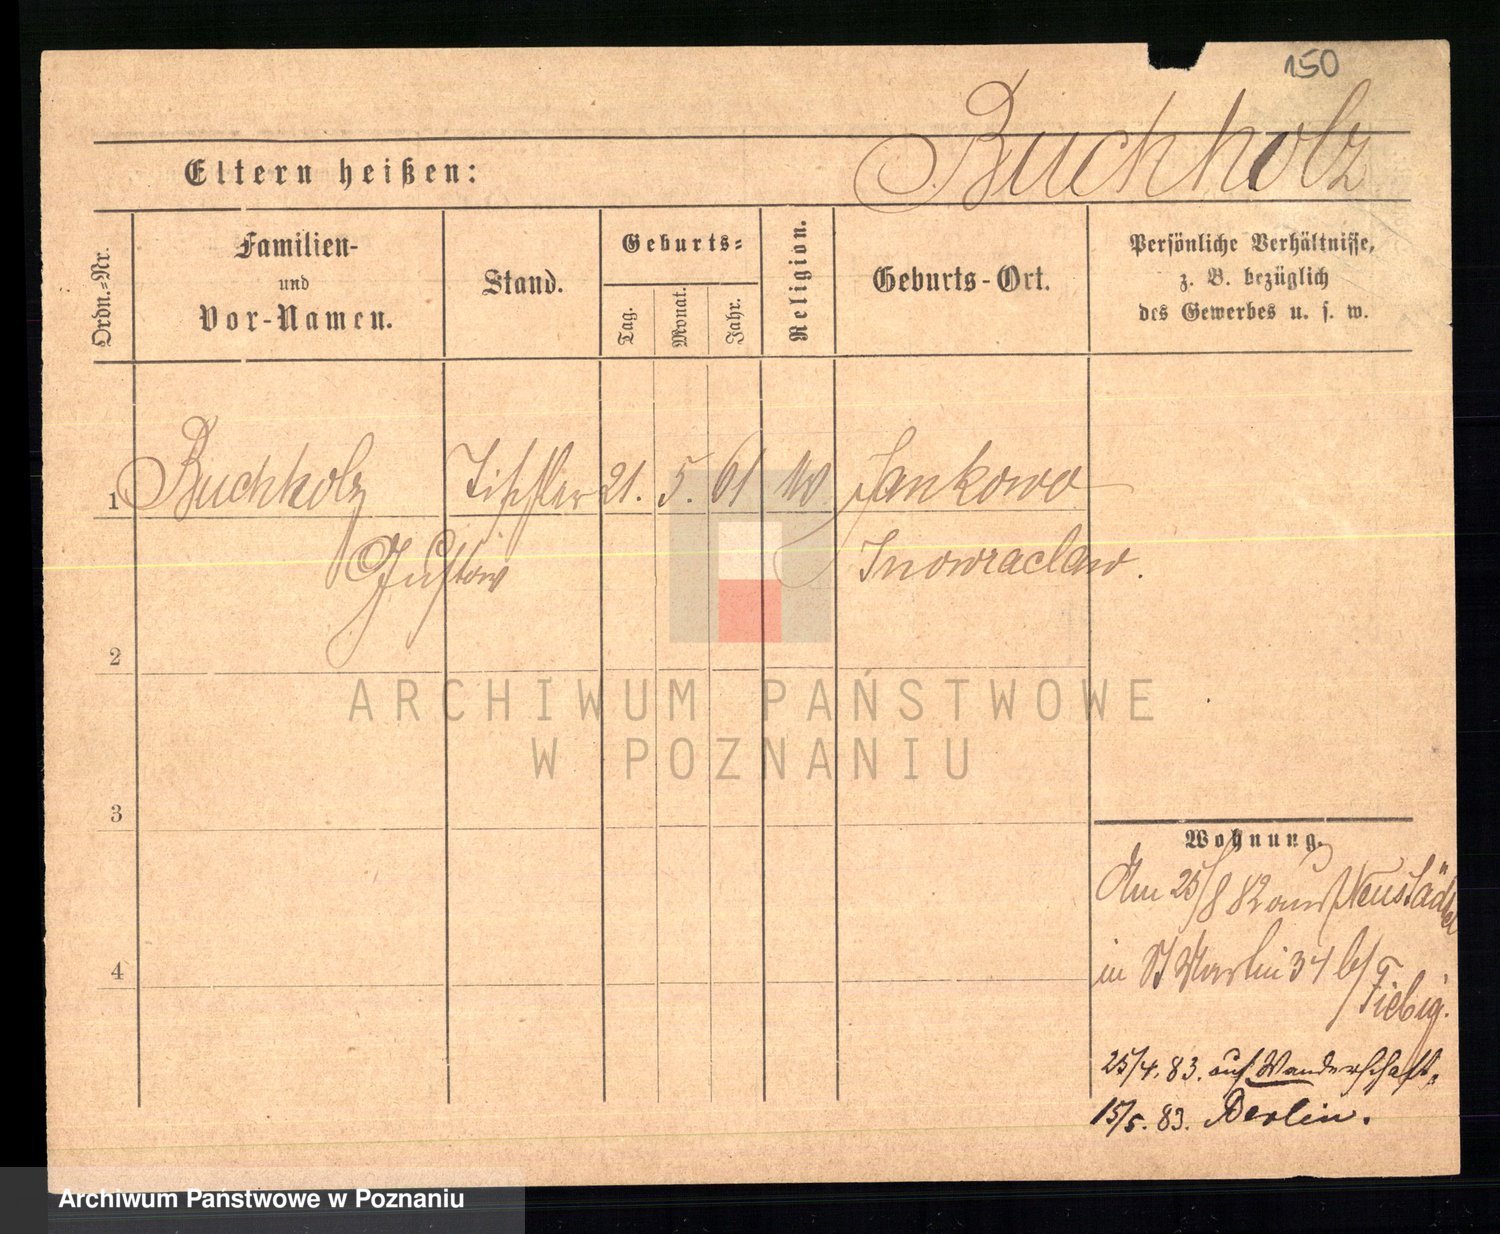 150
Buchholz
Eltern heißen:
Ordn.-Nr.
Familien-
und
Vor-Namen.
Stand.
Geburts-
Tag.
Monat.
Jahr.
Religion.
Geburts-Ort.
Persönliche Verhältnisse,
z. B. bezüglich
des Gewerbes u. s. w.
1 Buchholz Tischler 21. 5. 61 Jankowo
Gustav Inowraclaw.
2
3
4
Wohnung.
Am 25/8 82 aus Neustädter
in St Martin 34 b/
Fiebig.
25/4. 83. auf Wanderschaft.
15/5. 83. Berlin.
ARCHIWUM PAŃSTWOWE
W POZNANIU
Archiwum Państwowe w Poznaniu